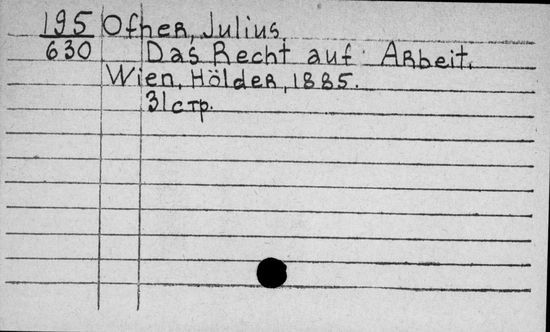 195 Ofner, Julius.
630 Das Recht auf Arbeit.
Wien, Hölder, 1885.
31 стр.